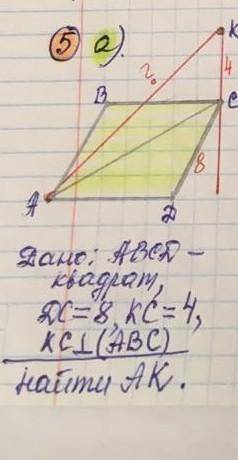 5 а).
K
?
4
B
C
8
A
D
Дано: ABCD –
квадрат,
DC=8, KC=4,
KC⊥(ABC)
найти AK.